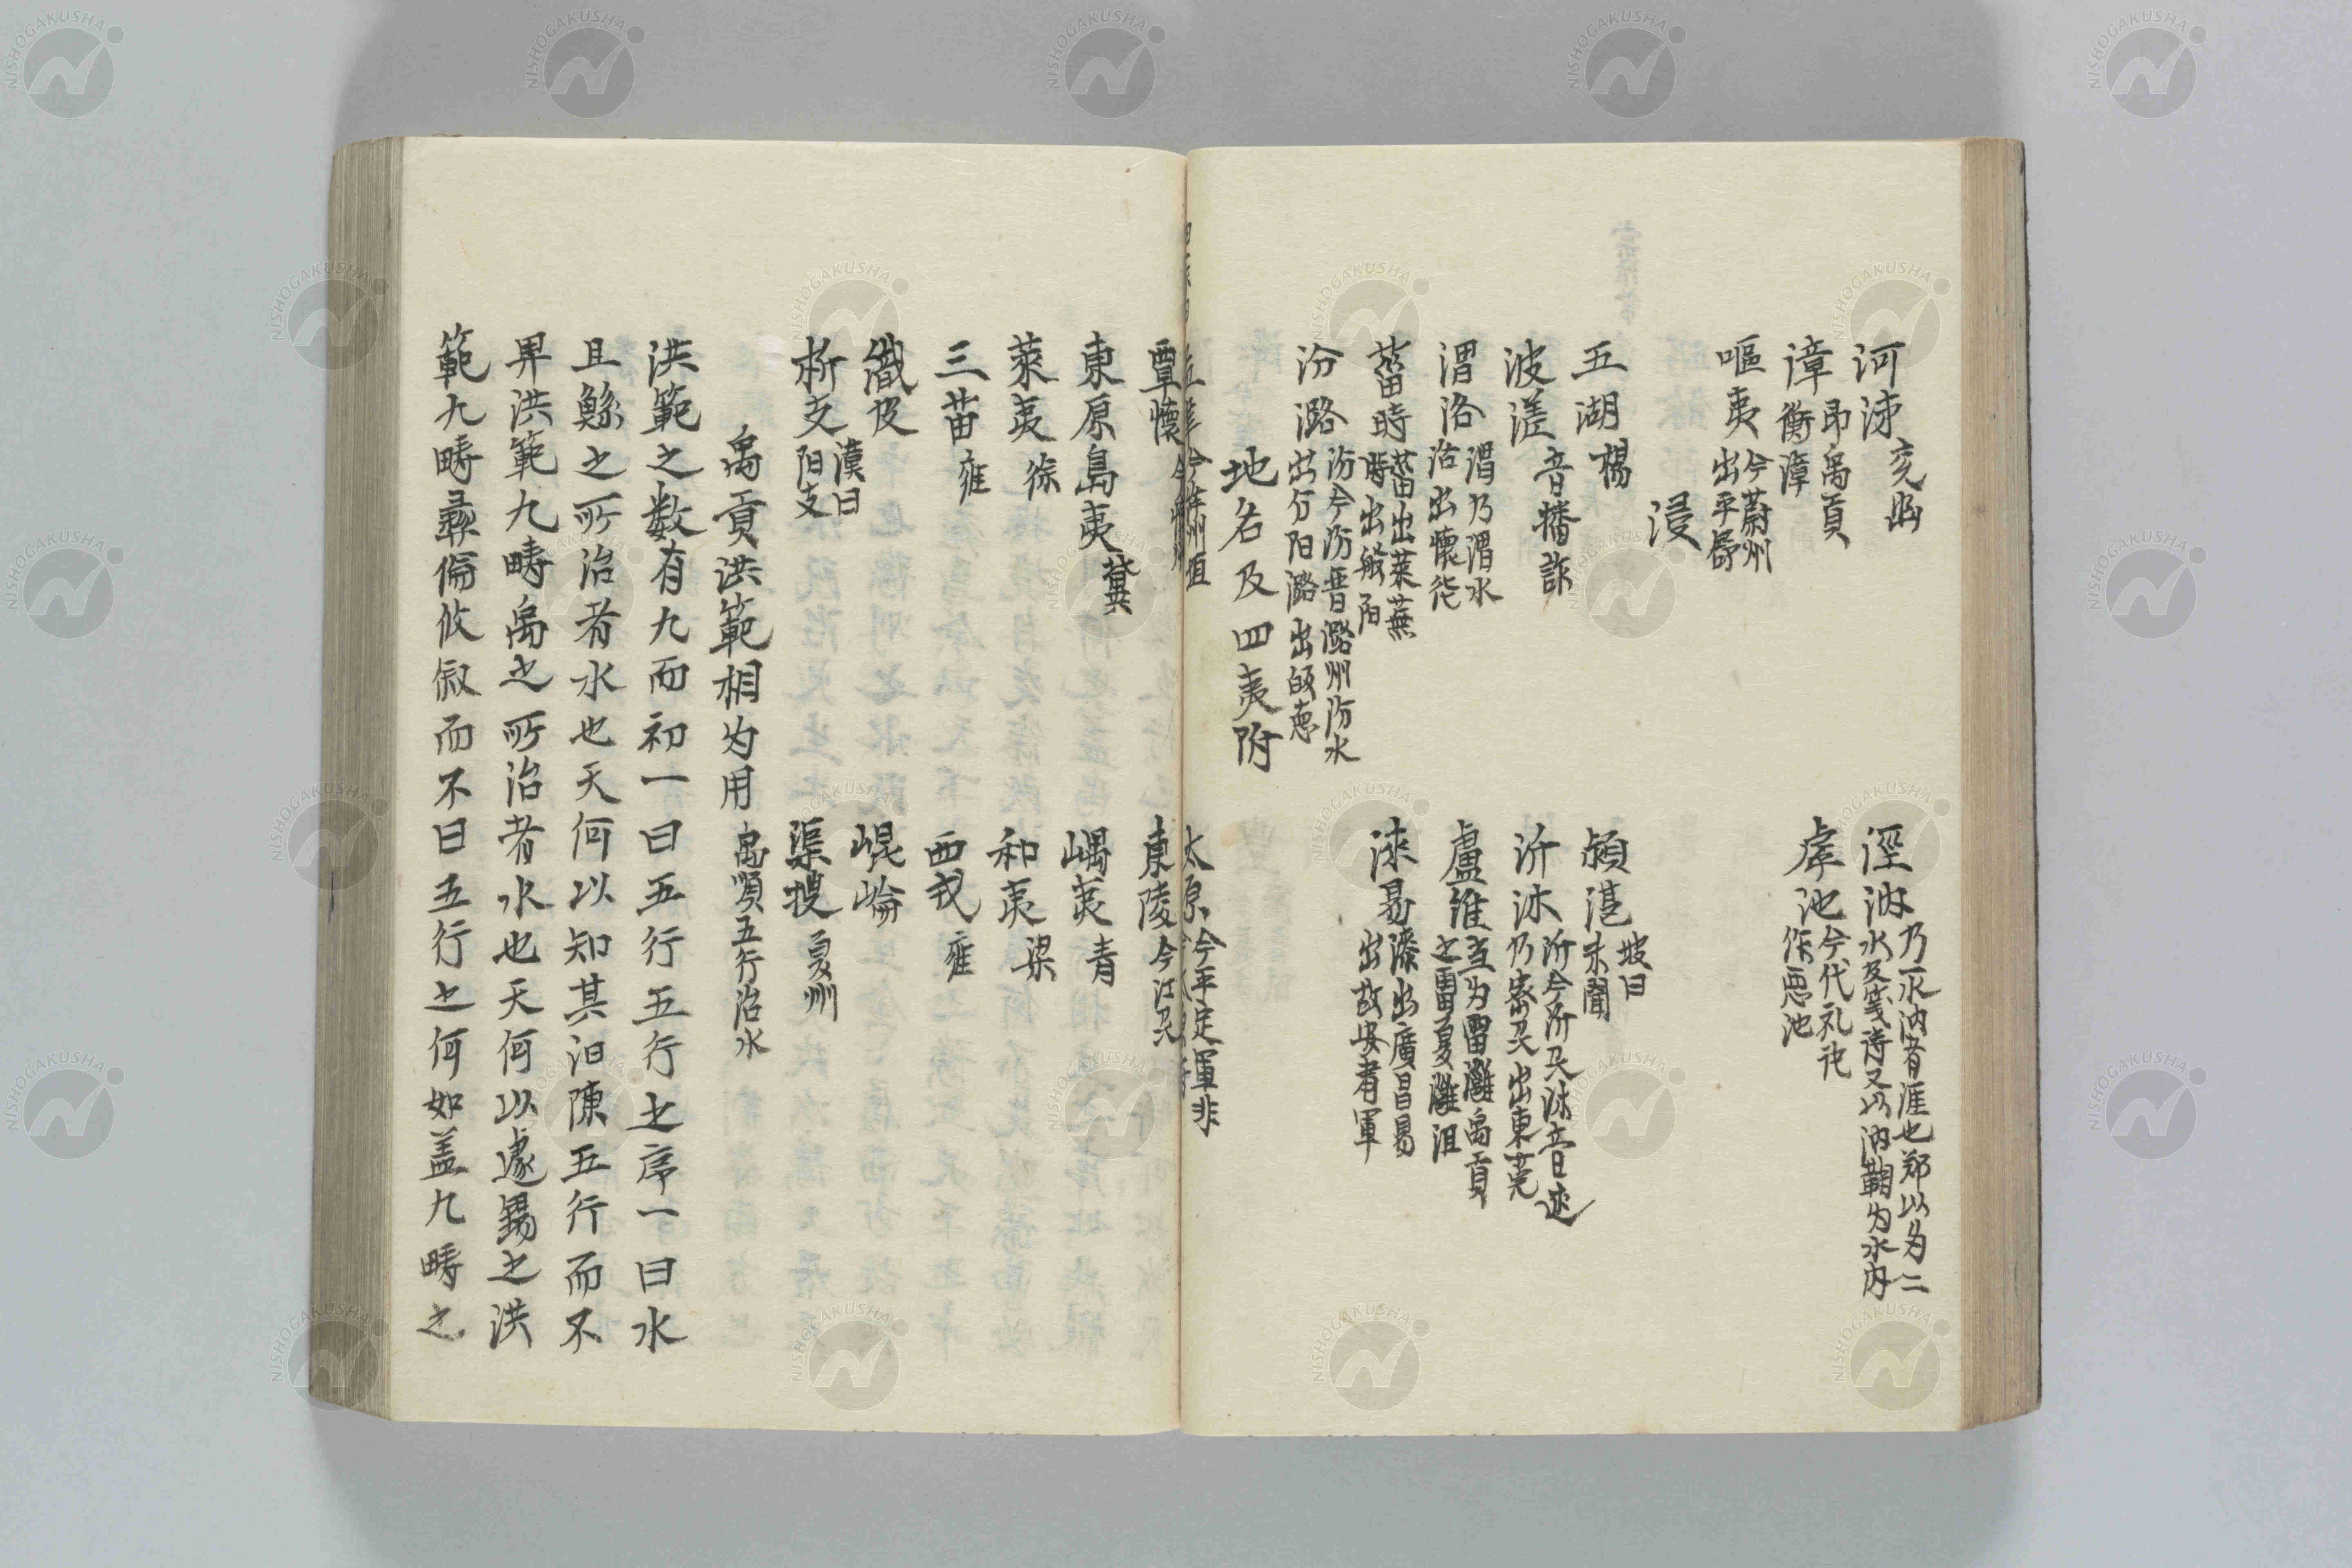 河泲 兖幽
涇汭 乃一水汭者涯也郑以为二
水及箋诗又以汭鞫为水内
漳 即禹貢
衡漳
虖池 今代礼记
作恶池
嘔夷 今蔚州
出平舒
浸
五湖 楊
潁湛 坡曰
未聞
波溠 音播詐
沂沭 沂今沂 沭音述
出東莞
渭洛 渭乃渭水
洛出懷德
盧維 当为雷灉禹貢
之雷夏灉沮
菑時 菑出萊蕪
時出般阳
淶易 淶出廣昌易
出故安者軍
汾潞 汾今汾晋潞州汾水
出汾阳潞出歸德
地名及四夷附
太原 今平定軍非
覃懷
東陵 今江
東原島夷 冀
嵎夷 青
萊夷 徐
和夷 梁
三苗 雍
西戎 雍
織皮
崐崘
析支 漢曰
阳支
渠搜 夏州
禹貢洪範相为用 禹順五行治水
洪範之数有九而初一曰五行五行之序一曰水
且鯀之所治者水也天何以知其汩陳五行而不
畀洪範九畴禹之所治者水也天何以遽錫之洪
範九畴彝倫攸叙而不曰五行之何如盖九畴之
NISHOGAKUSHA